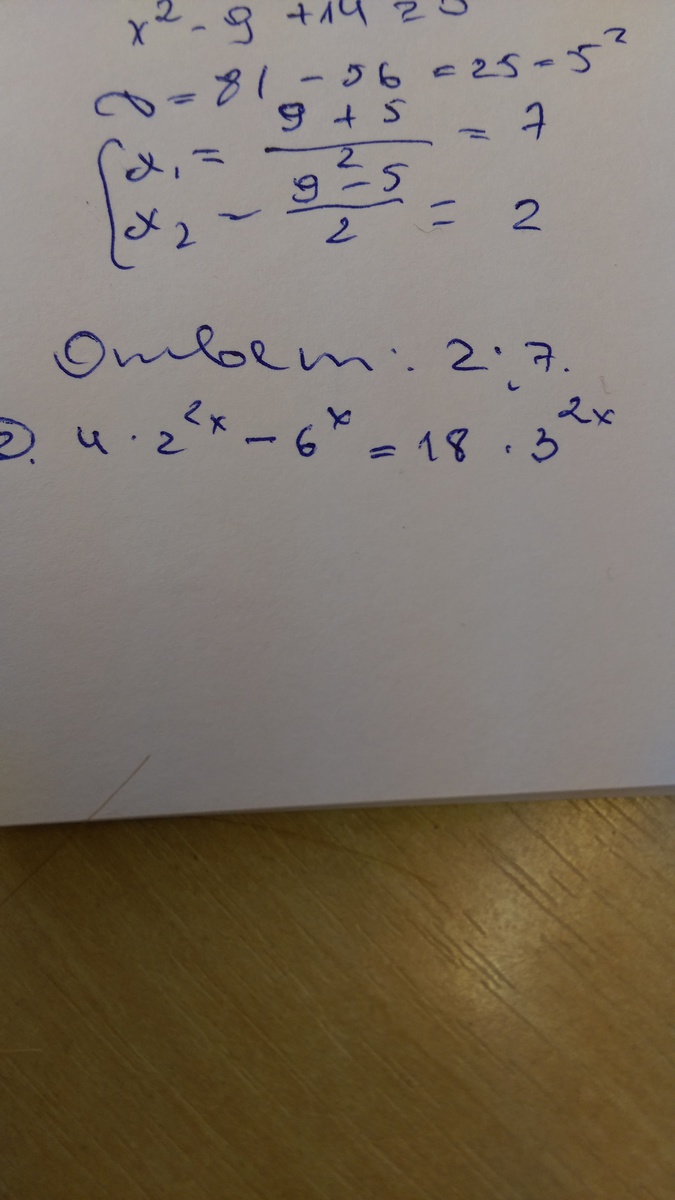 x² - 9 + 14 = 0
D = 81 - 56 = 25 = 5²
x₁ = (9 + 5)/2 = 7
x₂ - (9 - 5)/2 = 2
Ответ: 2; 7.
2. 4 · 2^2x - 6^x = 18 · 3^2x